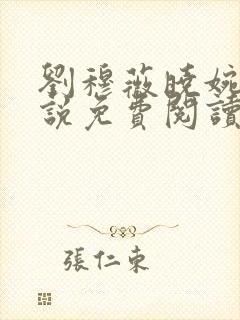 劉穆薇曉婉
說免費閱讀
張仁東